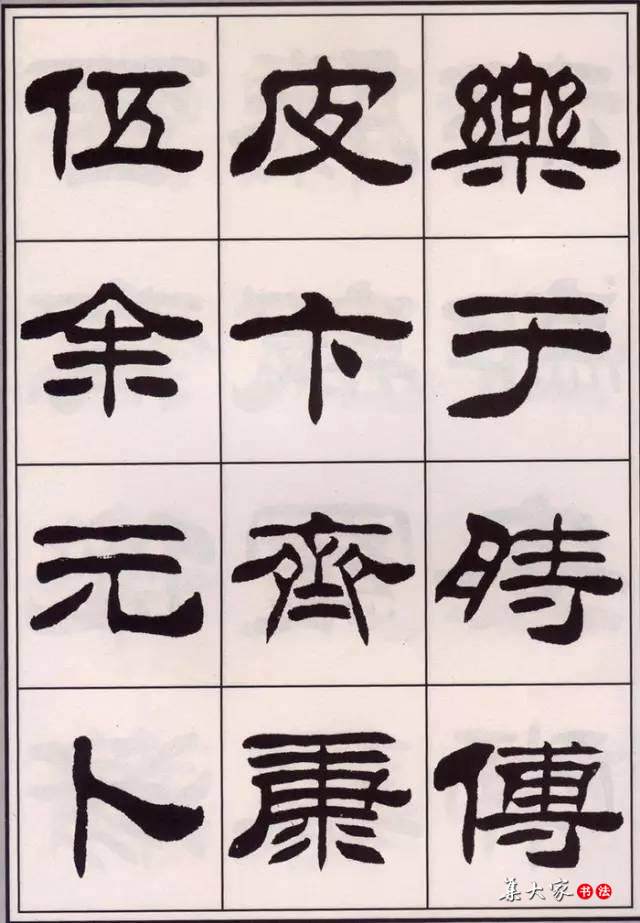 樂于時傅
皮卞齊康
伍余元卜
集大家
书法